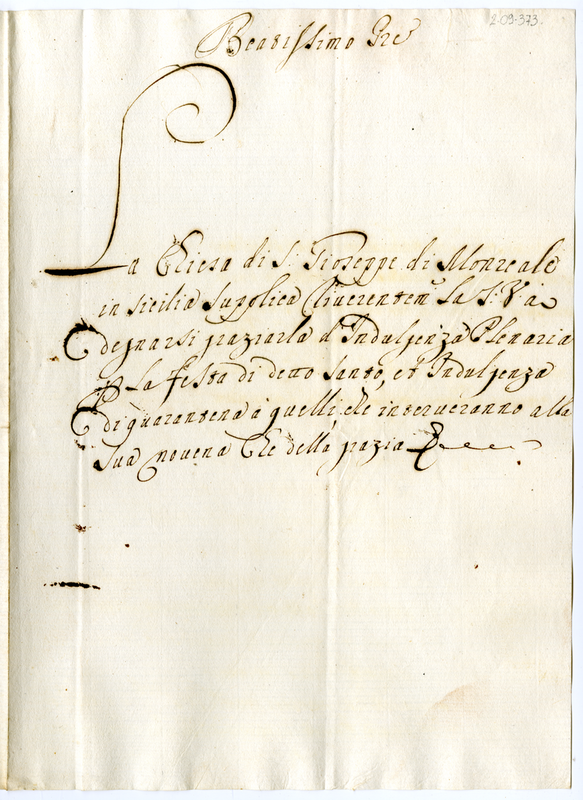 2-09-373.
Beatissimo Pre
La Chiesa di S. Gioseppe di Monreale
in Sicilia supplica riverentem.e la S. V. a
degnarsi graziarla d'Indulgenza Plenaria
p la festa di detto Santo, et Indulgenza
di quarantena à quelli, che interveranno alla
sua novena Che della grazia &